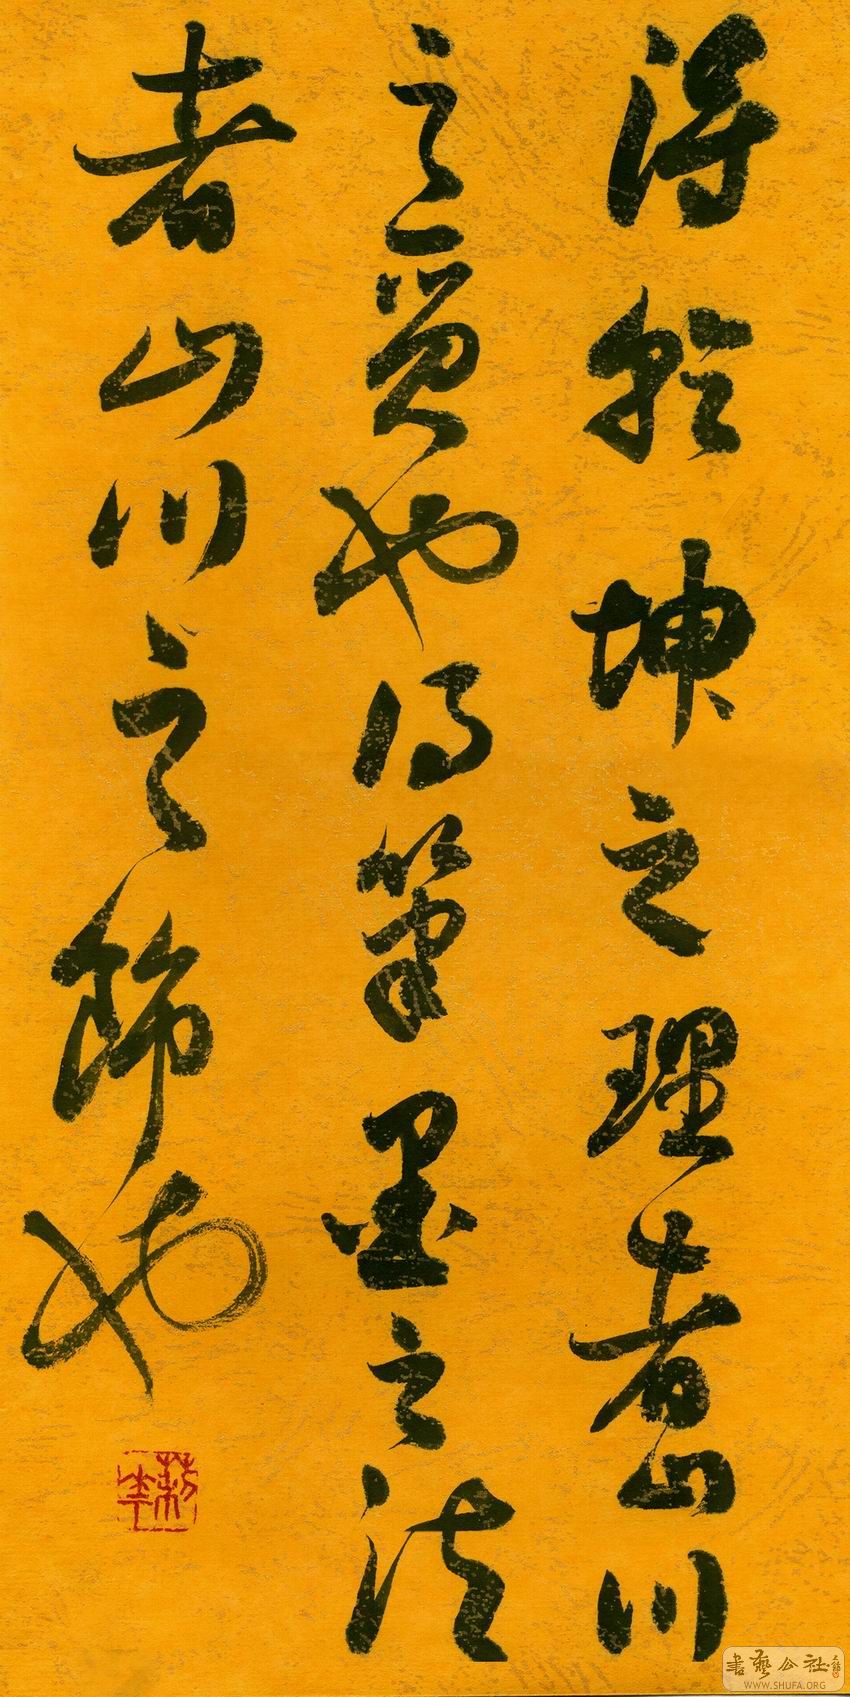 得乾坤之理者山川
之質也得筆墨之法
者山川之飾也
書藝公社
WWW.SHUFA.ORG